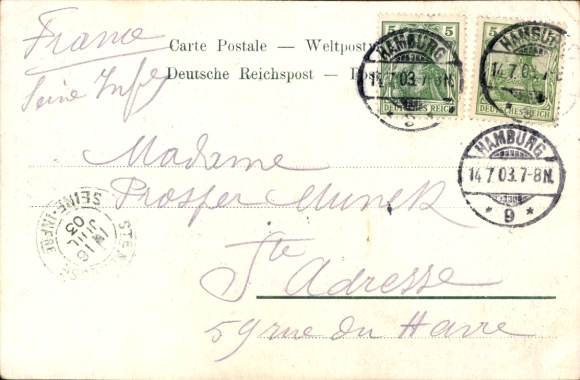 France
Seine Infre
Carte Postale — Weltpost
Deutsche Reichspost —
5 5
HAMBURG
14.7.03.7-8N.
* 9 *
DEUTSCHES REICH
5
HAMBURG
14.7.03.7
DEUTSCHES REICH
HAMBURG
14.7.03.7-8N.
* 9 *
Madame
Prosper Munck
Ste Adresse
59 rue du Havre
STE A
16
JUIL
03
SEINE-INFRE